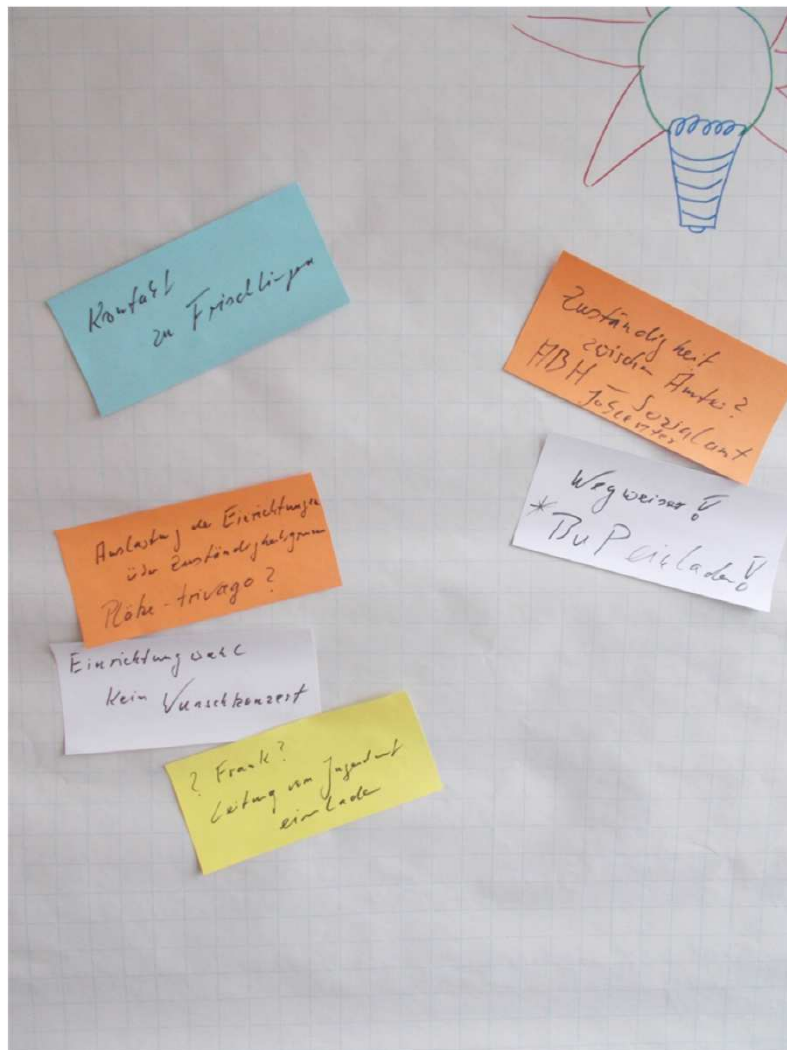 Kontakt
zu Frischlingen
Zuständigkeit
zwischen Ämter?
ABH – Sozialamt
Jobcenter
Wegweiser!
* BuP einladen!
Auslastung der Einrichtungen
über Zuständigkeitsgrenzen
Plätze-trivago?
Einrichtungswahl
Kein Wunschkonzert
? Frank?
Leitung vom Jugendamt
einladen